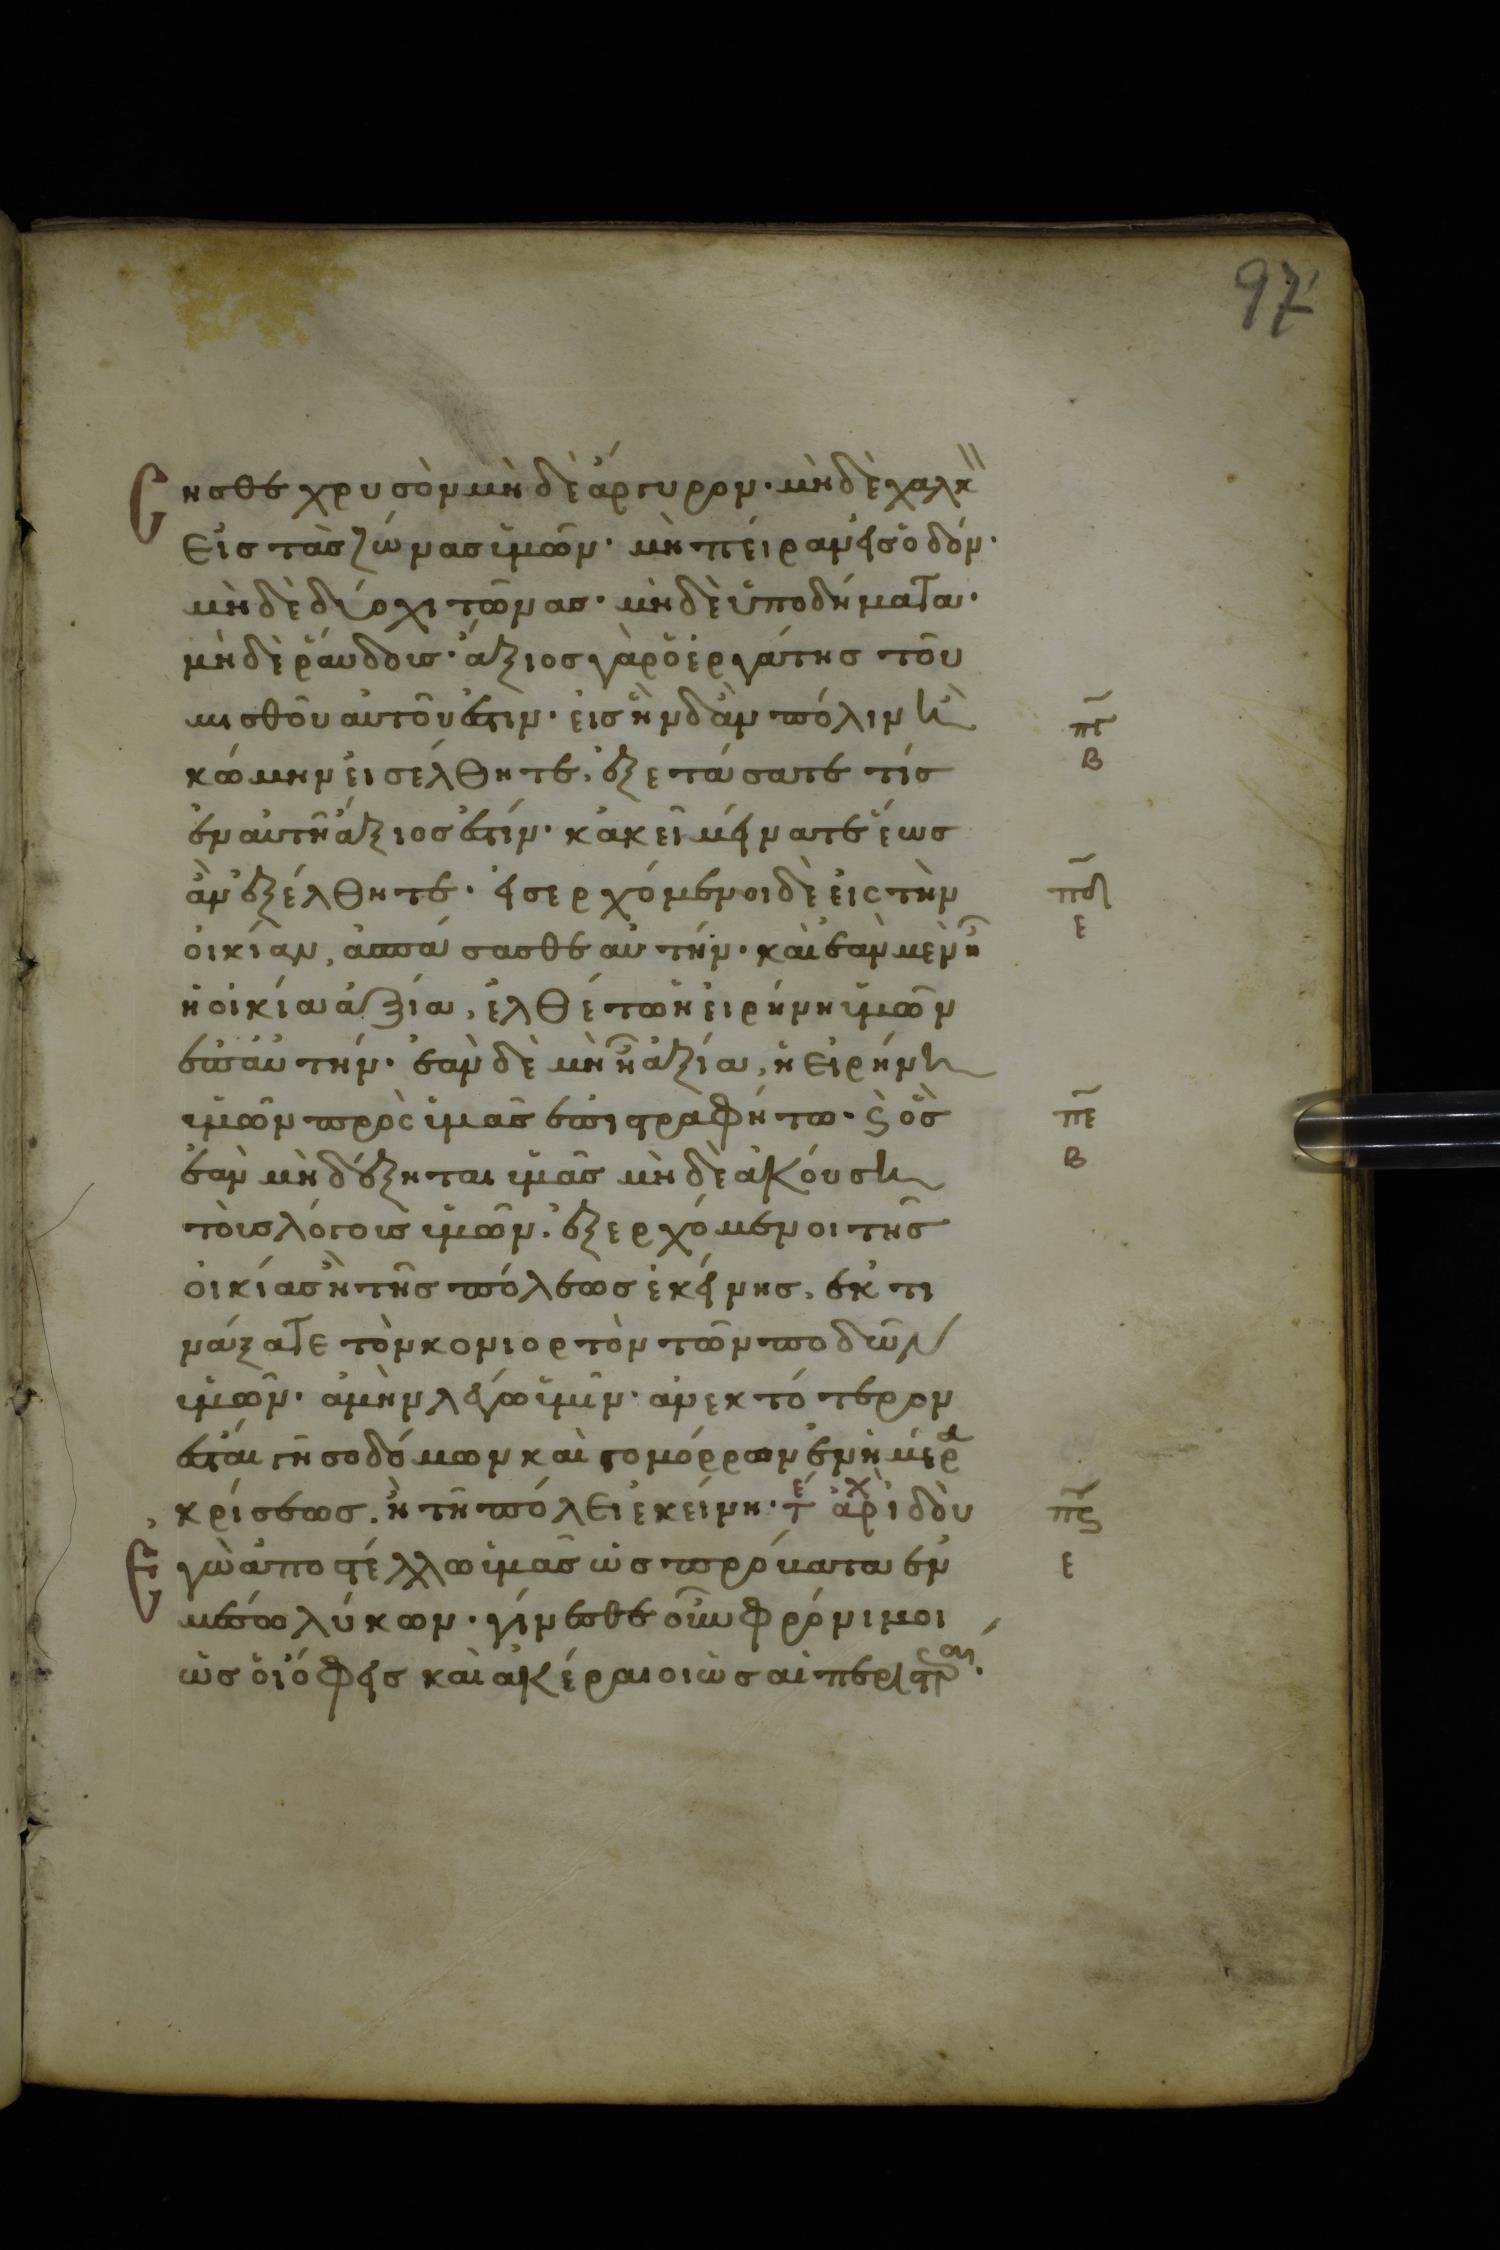 97
ησθε χρυσὸν μὴ δὲ ἄργυρον· μὴ δὲ χαλκὸ
εἰς τὰς ζώνας ὑμῶν· μὴ πείραν εἰς ὁδόν·
μὴ δὲ δύο χιτῶνας· μὴ δὲ ὑποδήματα·
μὴ δὲ ῥάβδους· ἄξιος γὰρ ὁ ἐργάτης τοῦ
μισθοῦ αὐτοῦ ἐστιν· εἰς ἣν δ' ἂν πόλιν ἢ
πδ
β
κώμην εἰσέλθητε, ἐξετάσατε τίς
ἐν αὐτῇ ἄξιος ἐστίν· κἀκεῖ μείνατε ἕως
ἂν ἐξέλθητε· εἰσερχόμενοι δὲ εἰς τὴν
ε
οἰκίαν, ἀσπάσασθε αὐτήν· καὶ ἐὰν μὲν ᾖ
ἡ οἰκία ἀξία, ἐλθέτω ἡ εἰρήνη ὑμῶν
ἐπ' αὐτήν· ἐὰν δὲ μὴ ᾖ ἀξία, ἡ εἰρήνη
ὑμῶν πρὸς ὑμᾶς ἐπιστραφήτω· ϛ ὃς
πε
β
ἐὰν μὴ δέξηται ὑμᾶς μὴ δὲ ἀκούση
τοὺς λόγους ὑμῶν· ἐξερχόμενοι τῆς
οἰκίας ἢ τῆς πόλεως ἐκείνης, ἐκτι
νάξατε τὸν κονιορτὸν τῶν ποδῶν
ὑμῶν· ἀμὴν λέγω ὑμῖν· ἀνεκτότερον
ἔσται γῆ σοδόμων καὶ γομόρρων ἐν ἡμέρα
κρίσεως, ἢ τῇ πόλει ἐκείνη· τε ἀρχ ἰδοὺ
πϛ
ε
ἐγὼ ἀποστέλλω ὑμᾶς ὡς πρόβατα ἐν
μέσω λύκων· γίνεσθε οὖν φρόνιμοι
ὡς οἱ ὄφεις καὶ ἀκέραιοι ὡς αἱ περιστεραί·